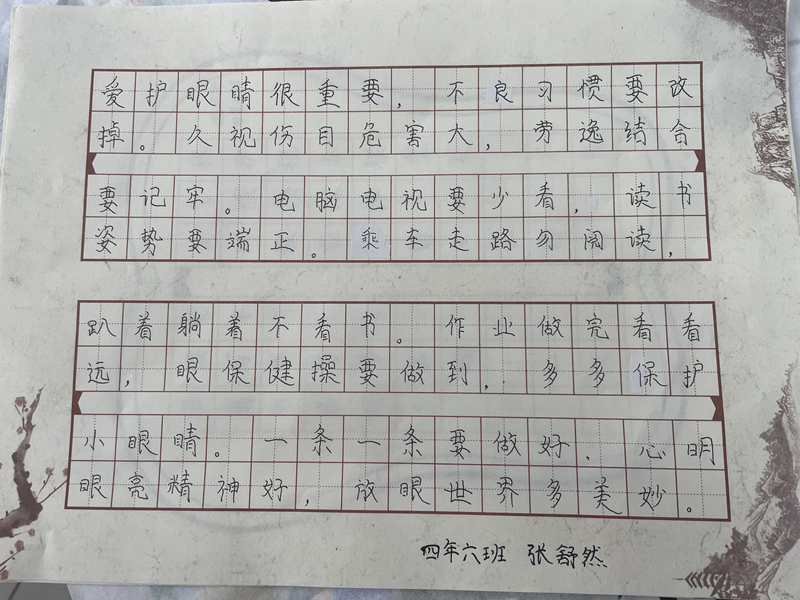 爱护眼睛很重要，不良习惯要改
掉。久视伤目危害大，劳逸结合
要记牢。电脑电视要少看，读书
姿势要端正。乘车走路勿阅读，
趴着躺着不看书。作业做完看看
远，眼保健操要做到，多多保护
小眼睛。一条一条要做好，心明
眼亮精神好，放眼世界多美妙。
四年六班 张舒然